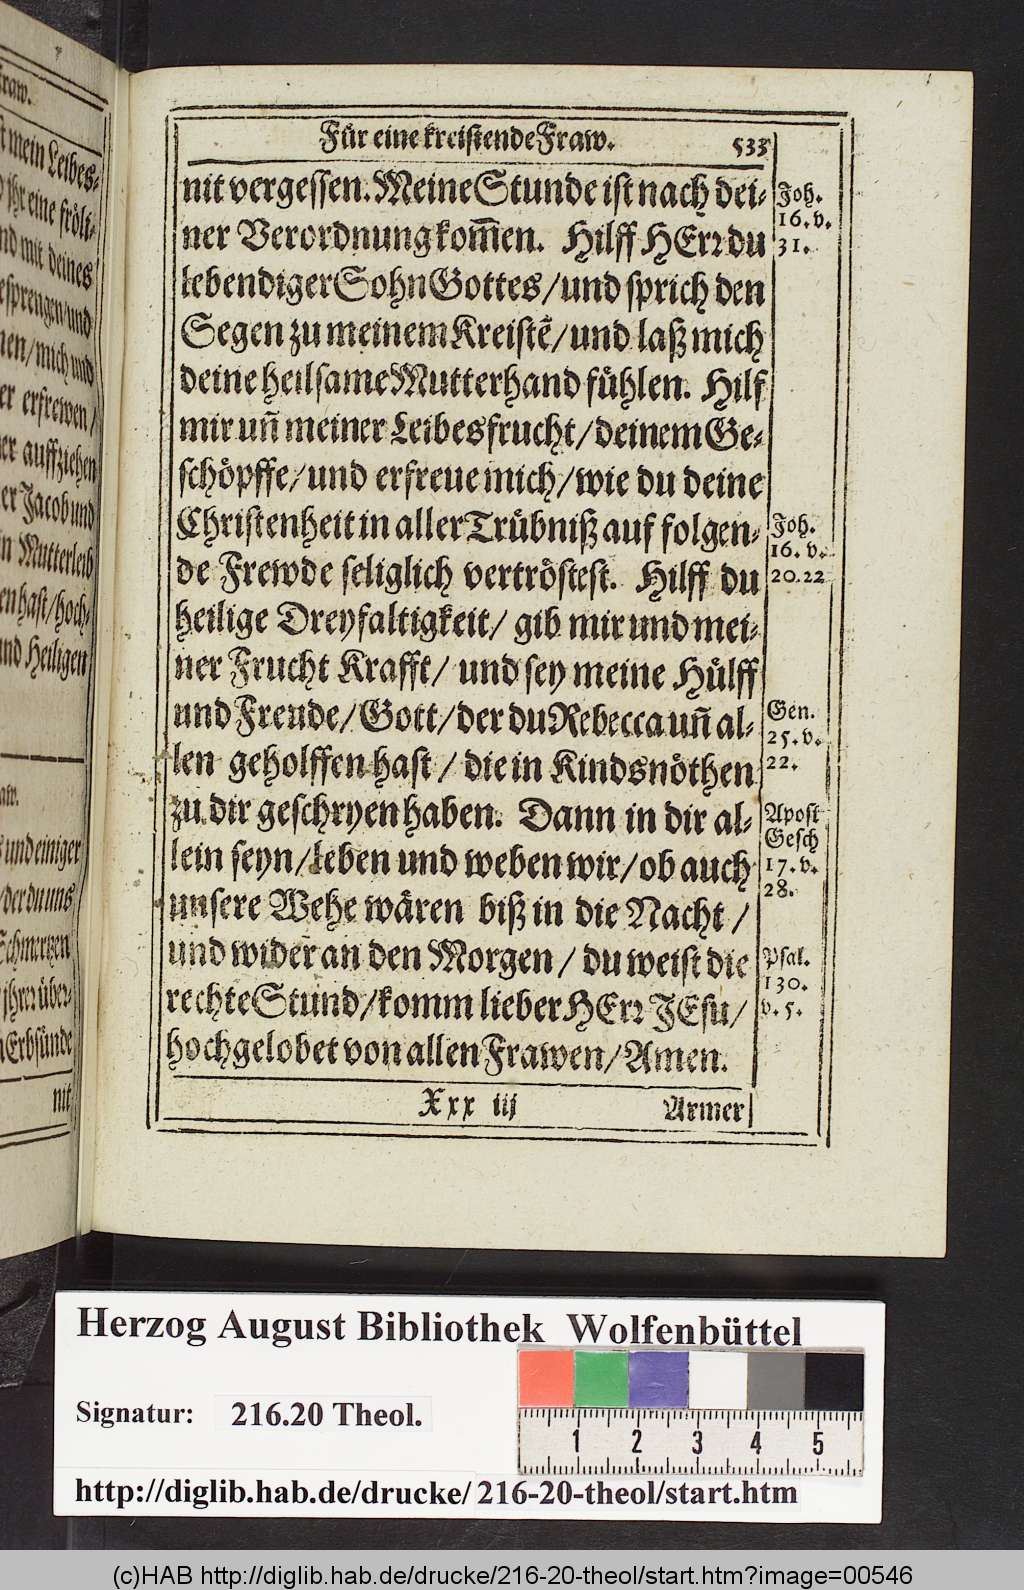 Fraw.
mein Leibes-
ihr eine fröli-
nd mit deines
esprengen/und
nen/mich und
er erfrewen/
er auffziehen
er Jacob und
in Mutterleib
en hast/hoch-
und Heiligen
aw.
s und einiger
/der du uns
Schmertzen
ihrer über-
Erbsünde
nit
Für eine kreistende Fraw. 533
nit vergessen. Meine Stunde ist nach dei-
ner Verordnung kom̃en. Hilff HErr du
lebendiger Sohn Gottes/und sprich den
Segen zu meinem Kreistẽ/und laß mich
deine heilsame Mutterhand fühlen. Hilf
mir uñ meiner Leibesfrucht/deinem Ge-
schöpffe/und erfreue mich/wie du deine
Christenheit in aller Trübniß auf folgen-
de Frewde seliglich vertröstest. Hilff du
heilige Dreyfaltigkeit/ gib mir und mei-
ner Frucht Krafft/ und sey meine Hülff
und Freude/Gott/der du Rebecca uñ al-
len geholffen hast / die in Kindsnöthen
zu dir geschryen haben. Dann in dir al-
lein seyn/leben und weben wir/ob auch
unsere Wehe wären biß in die Nacht /
und wider an den Morgen / du weist die
rechte Stund/komm lieber HErr JEsu/
hochgelobet von allen Frawen/Amen.
Joh.
16. v.
31.
Joh.
16. v.
20.22
Gen.
25. v.
22.
Apost
Gesch
17. v.
28.
Psal.
130.
v. 5.
Xxx iij Armer
Herzog August Bibliothek Wolfenbüttel
Signatur: 216.20 Theol.
1 2 3 4 5
http://diglib.hab.de/drucke/216-20-theol/start.htm
(c)HAB http://diglib.hab.de/drucke/216-20-theol/start.htm?image=00546